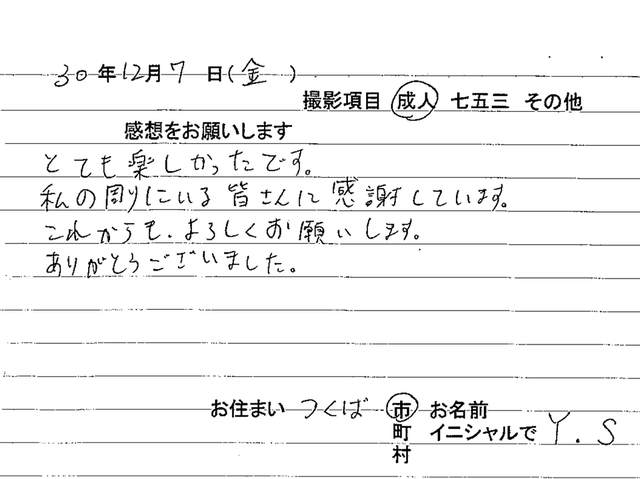 30年12月7日(金)
撮影項目 成人 七五三 その他
感想をお願いします
とても楽しかったです。
私の周りにいる皆さんに感謝しています。
これからも、よろしくお願いします。
ありがとうございました。
お住まい つくば 市 お名前
町 イニシャルで Y.S
村